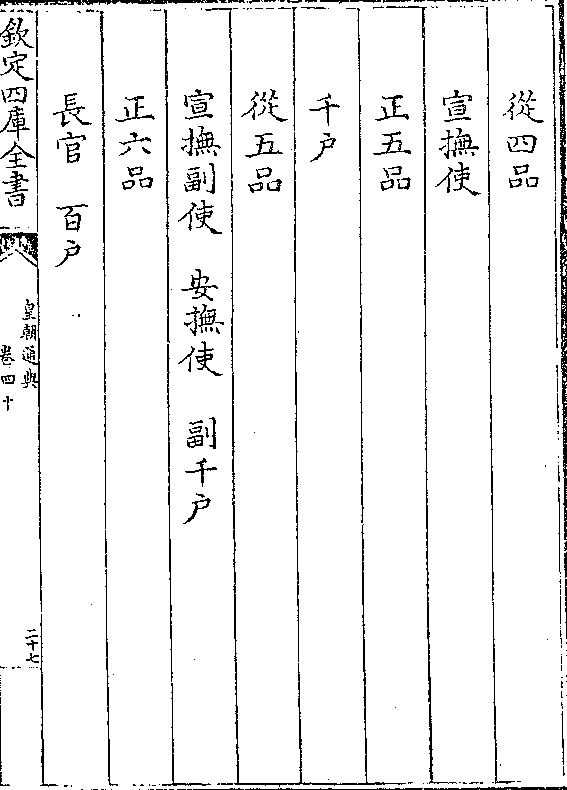 從四品
宣撫使
正五品
千户
從五品
宣撫副使　安撫使　副千户
正六品
長官　百户
欽定四庫全書
皇朝通典
卷四十
二十七